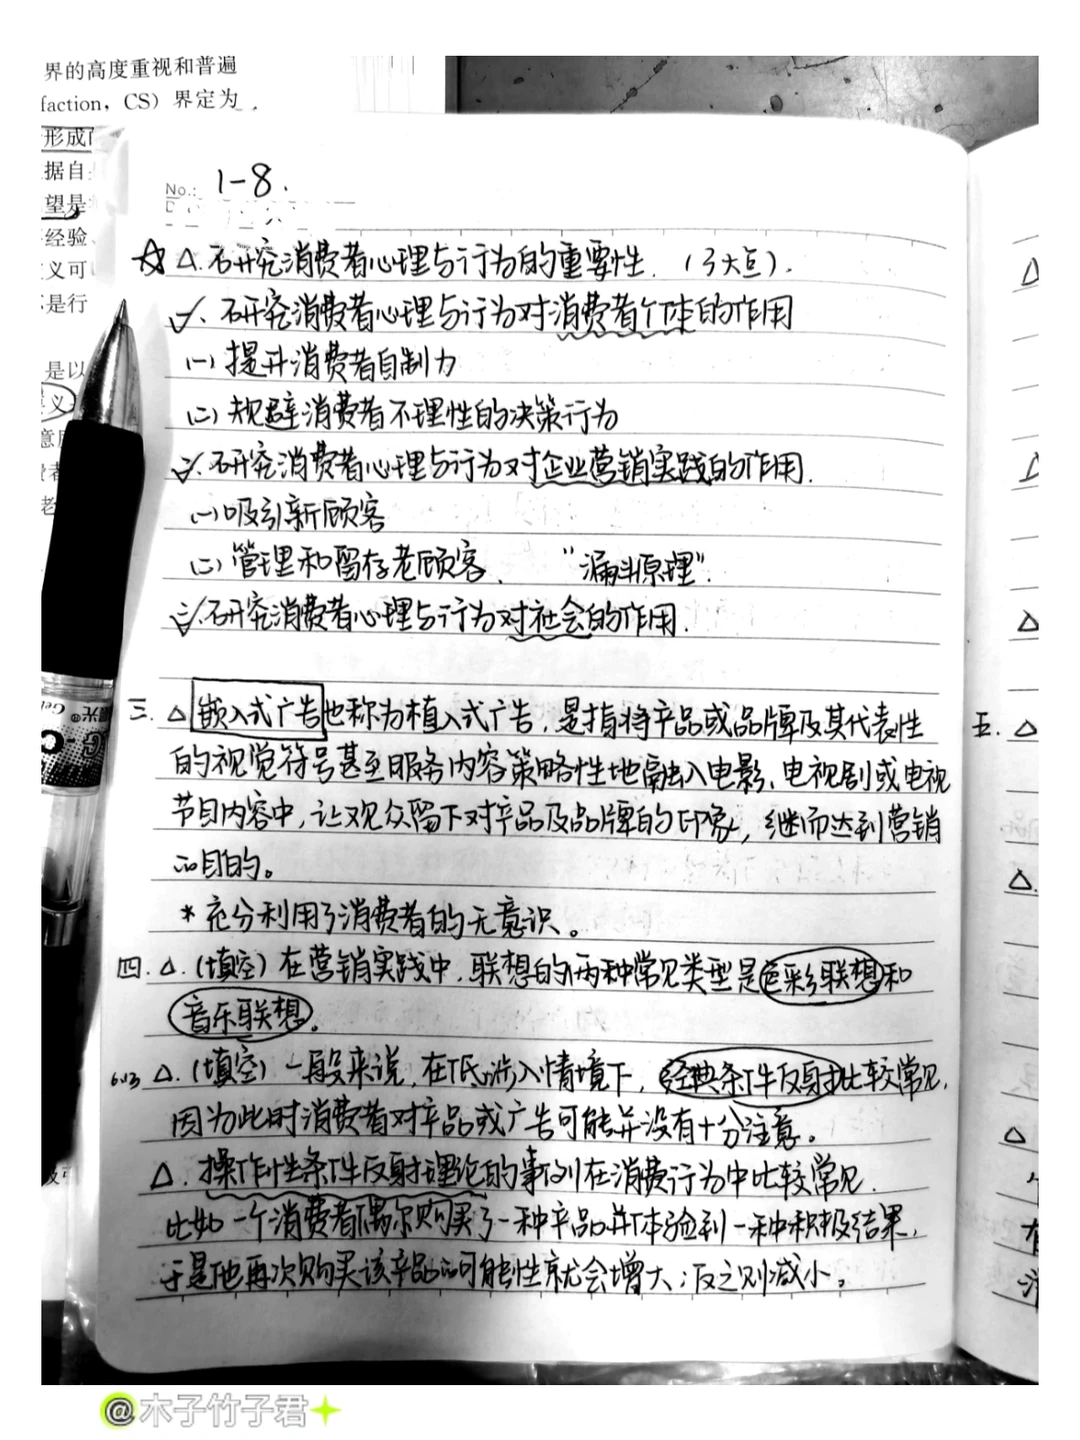 界的高度重视和普遍
faction，CS）界定为
形成
据自
望是
经验、
义可
是行
是以
义
意
老
No.: 1-8.
☆ △. 研究消费者心理与行为的重要性. (3大点).
一、研究消费者心理与行为对消费者个体的作用
(一) 提升消费者自制力
(二) 规避消费者不理性的决策行为
二、研究消费者心理与行为对企业营销实践的作用.
(一) 吸引新顾客
(二) 管理和留存老顾客. “漏斗原理”.
三、研究消费者心理与行为对社会的作用.
三. △ 嵌入式广告也称为植入式广告, 是指将产品或品牌及其代表性
的视觉符号甚至服务内容策略性地融入电影、电视剧或电视
节目内容中, 让观众留下对产品及品牌的印象, 继而达到营销
的目的。
* 充分利用了消费者的无意识。
四. △. (填空) 在营销实践中, 联想的两种常见类型是色彩联想和
音乐联想.
6.13 △. (填空) 一般来说, 在低涉入情境下, 经典条件反射比较常见,
因为此时消费者对产品或广告可能并没有十分注意。
△. 操作性条件反射理论的事例在消费行为中比较常见.
比如一个消费者偶尔购买了一种产品并体验到一种积极结果,
于是他再次购买该产品的可能性就会增大; 反之则减小。
五. △
△
△
△.
△
有
@木子竹子君